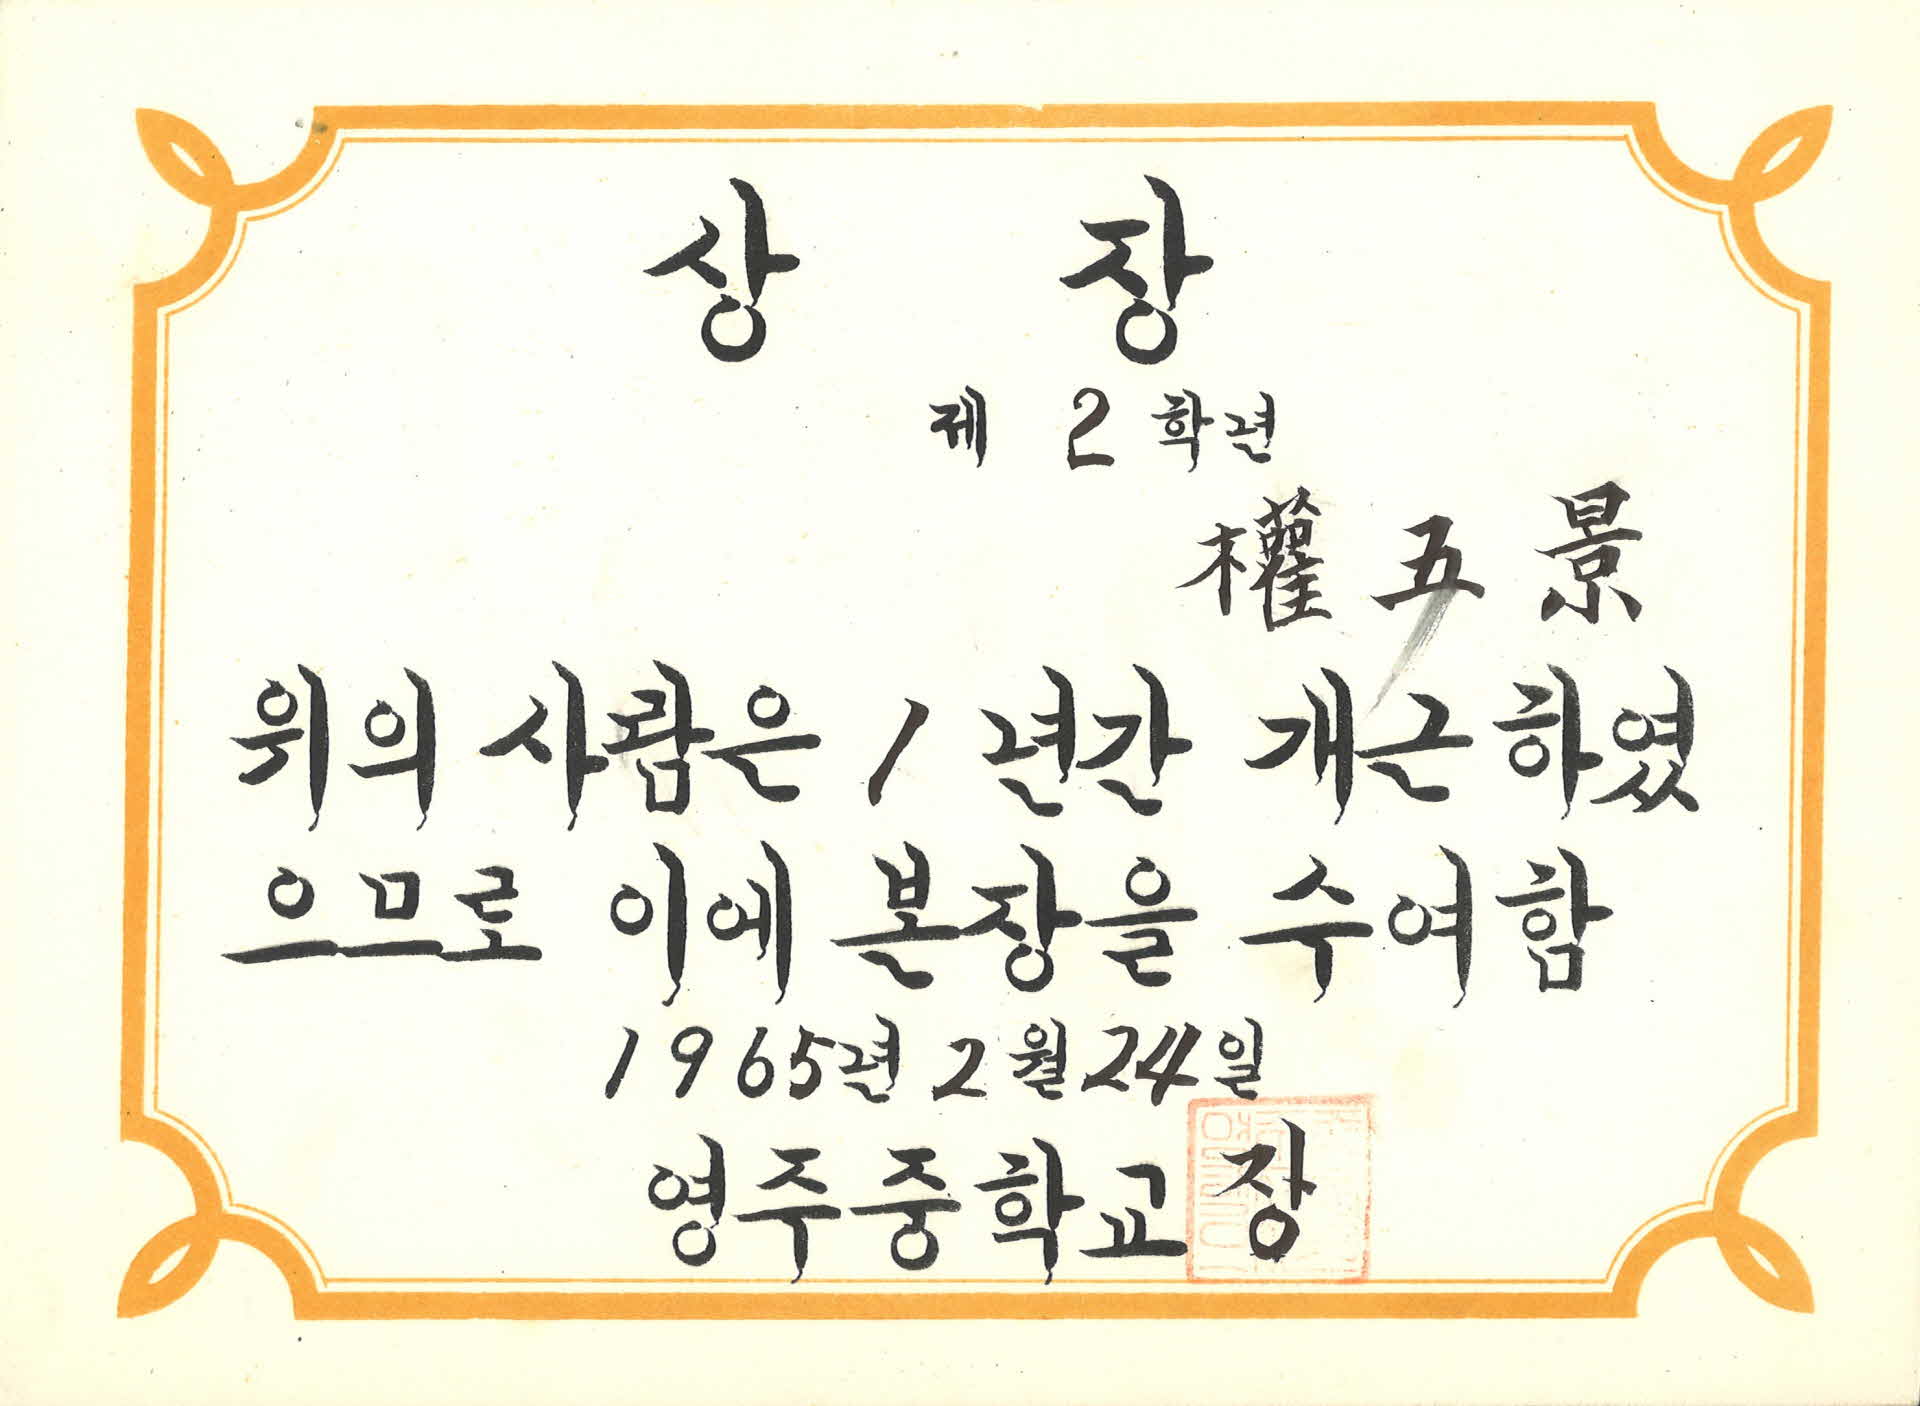 상 장
제 2 학년
權 五 景
위의 사람은 1 년간 개근하였
으므로 이에 본장을 수여함
1965년 2월 24일
영주중학교장